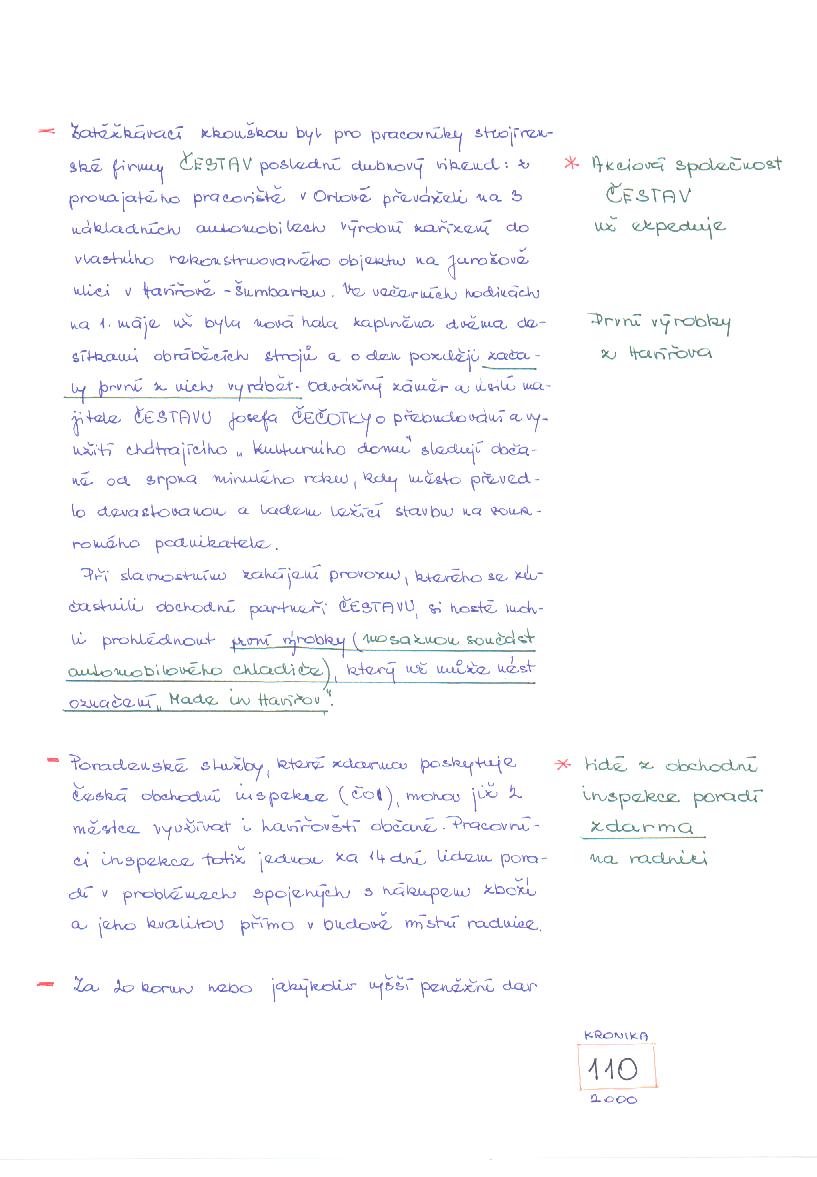 – Zatěžkávací zkouškou byl pro pracovníky strojíren-
ské firmy ČESTAV poslední dubnový víkend: z
pronajatého pracoviště v Orlové převáželi na 3
nákladních automobilech výrobní zařízení do
vlastního rekonstruovaného objektu na Jarošově
ulici v Havířově-Šumbarku. Ve večerních hodinách
na 1. máje už byla nová hala zaplněna dvěma de-
sítkami obráběcích strojů a o den později zača-
ly první z nich vyrábět. Odvážný záměr a úsilí ma-
jitele ČESTAVU Josefa ČEČOTKY o přebudování a vy-
užití chátrajícího „Kulturního domu" sledují obča-
né od srpna minulého roku, kdy město převed-
lo devastovanou a ladem ležící stavbu na souk-
romého podnikatele.
Při slavnostním zahájení provozu, kterého se zú-
častnili obchodní partneři ČESTAVU, si hosté moh-
li prohlédnout první výrobky (mosaznou součást
automobilového chladiče), který už může nést
označení „Made in Havířov".
* Akciová společnost
ČESTAV
už expeduje
První výrobky
z Havířova
– Poradenské služby, které zdarma poskytuje
Česká obchodní inspekce (ČOI), mohou již 2
měsíce využívat i havířovští občané. Pracovní-
ci inspekce totiž jednou za 14 dní lidem pora-
dí v problémech spojených s nákupem zboží
a jeho kvalitou přímo v budově místní radnice.
* Lidé z obchodní
inspekce poradí
zdarma
na radnici
– Za 20 korun nebo jakýkoliv vyšší peněžní dar
KRONIKA
110
2000